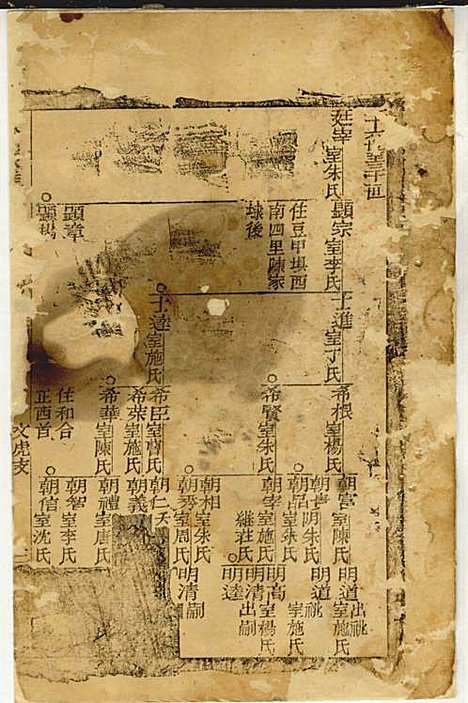 廷宰室朱氏
顯宗室李氏
士進室丁氏
希根室楊氏
朝宮室陳氏
明道出祧
室施氏
朝貴
明道祧
朝品室朱氏
室施氏
任豆甲填西
南四里陳家
垛後
希賢室朱氏
朝宰室施氏
明高室楊氏
繼莊氏
明清出嗣
明達
朝相室朱氏
朝秀室周氏
明清嗣
顯章
士達室施氏
希臣室曹氏
朝仁夭
朝義
希萊室施氏
希華室陳氏
朝禮室唐氏
朝智室李氏
任和合
正酉首
朝信室沈氏
顯揚
文虎支